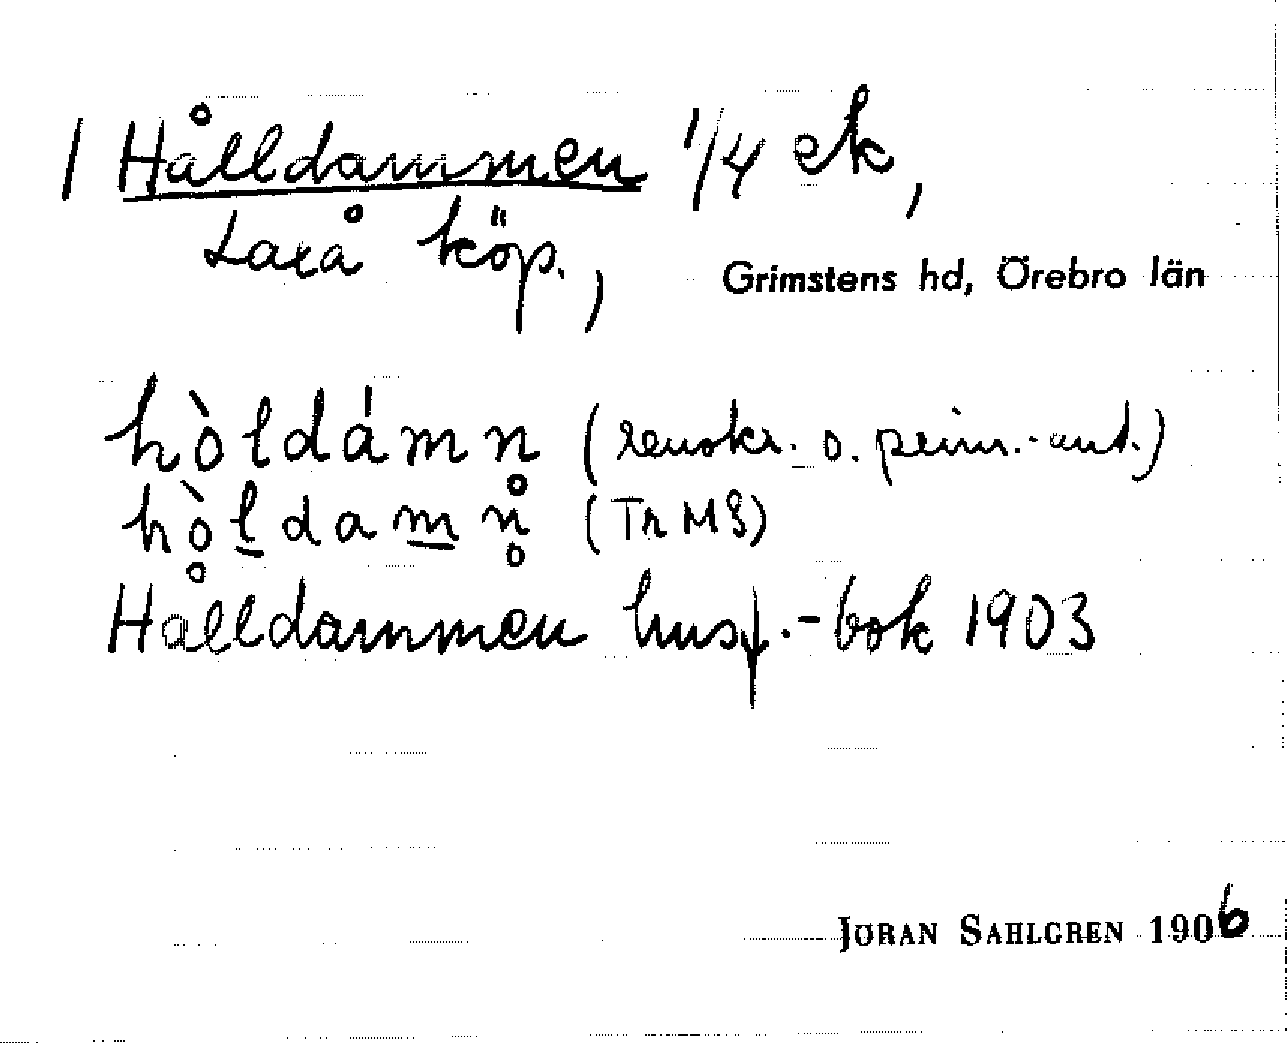 1 Hålldammen 1/4 ek,
Laxå köp.,
Grimstens hd, Örebro län
hòldámn (renskr. o. primr.-ant.)
hòldamn̥̊ (Tr MS)
Hålldammen husf.-bok 1903
JÖRAN SAHLGREN 1906